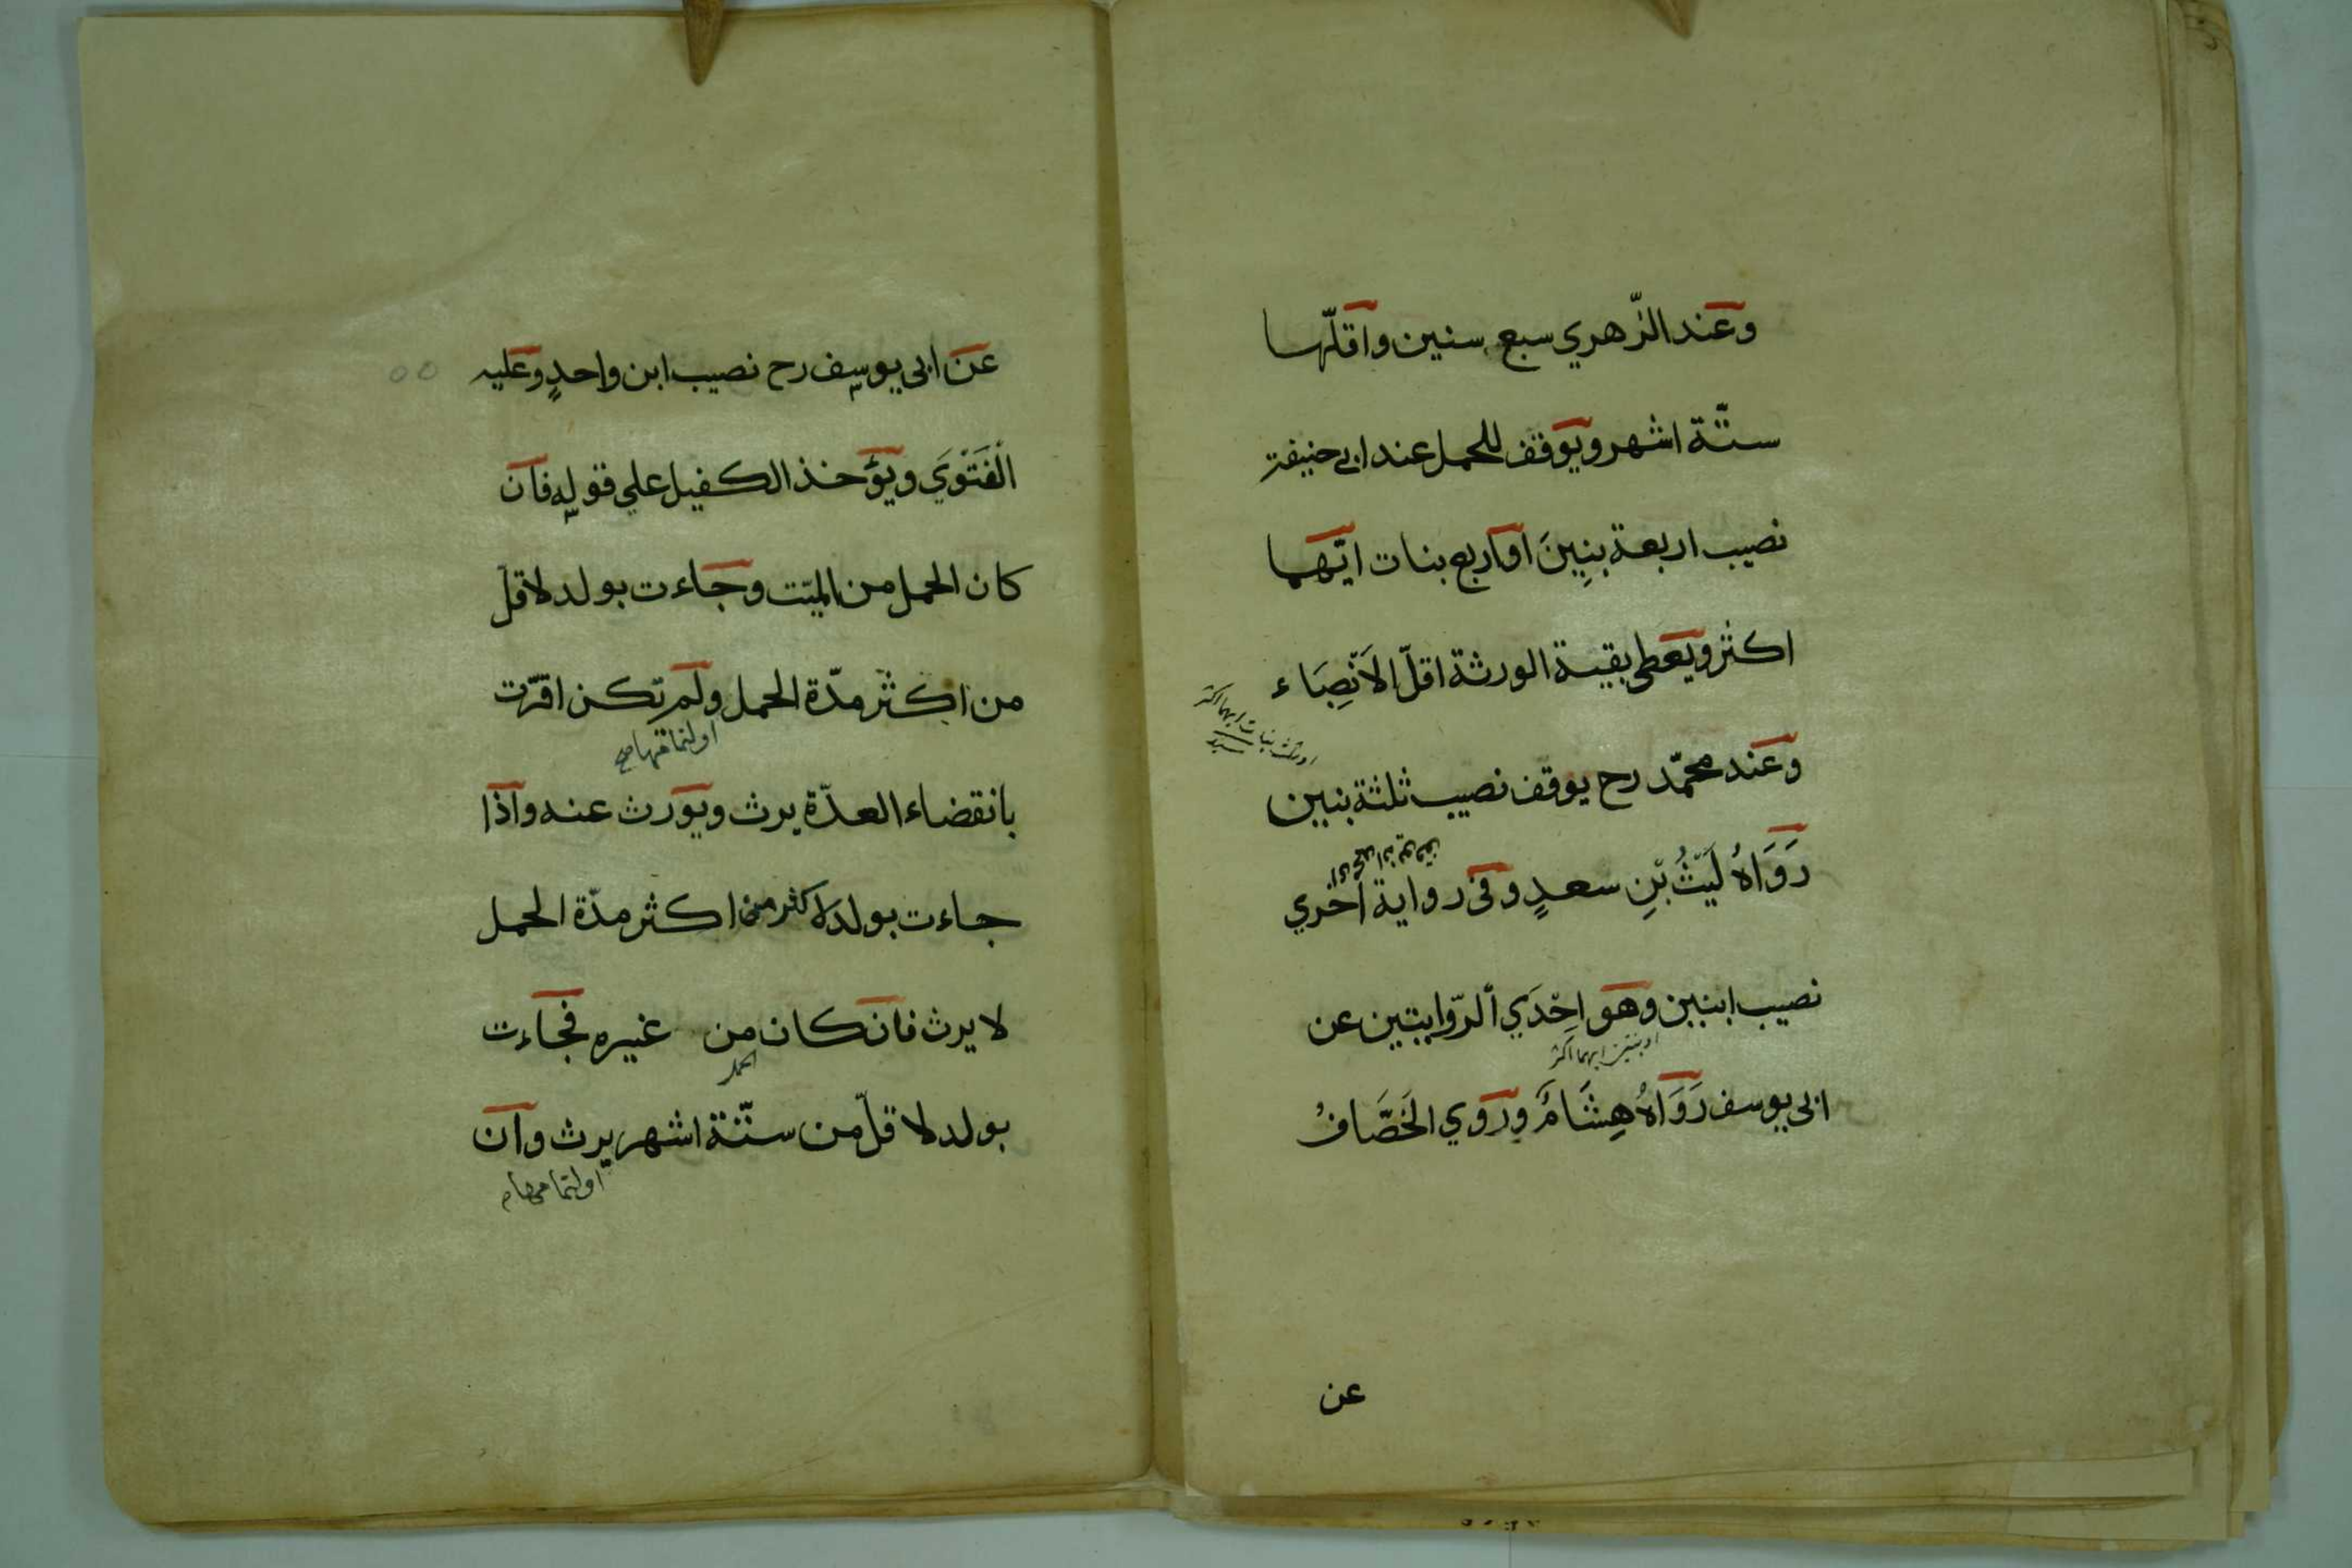 وعند الزّهري سبع سنين واقلّها
ستّة اشهر ويوقف للحمل عند ابي حنيفة
نصيب اربعة بنِينَ او اربع بنات ايّهما
اكثر ويعطى بقية الورثة اقلّ الاَنْصِبَاء
او ثلث بنات ايهما اكثر
سيد
وعند محمّد رح يوقف نصيب ثلثة بنين
رَوَاهُ لَيْثُ بْنِ سعدٍ وفى رواية اخري
نصيب ابنين وهو اِحْدَي ألرّوايتين عن
او بنتين ايهما اكثر
ابى يوسف رَوَاهُ هِشَامٌ ورَوي الخَصَّافُ
عن
عن ابى يوسف رح نصيب ابن واحدٍ وعليه
الْفَتْوَي ويؤخذ الكفيل علي قوله فان
كان الحمل من الميّت وجاءت بولد لاقلّ
من اكثر مدّة الحمل ولم تكن اقرّت
او لتمامها صح
بانقضاء العدّة يرث ويورث عنه واذا
جاءت بولد لاكثر من اكثر مدّة الحمل
لا يرث فان كان من غيره فجاءت
الحمل
بولد لاقلّ من ستّة اشهر يرث وان
او لتمامها م